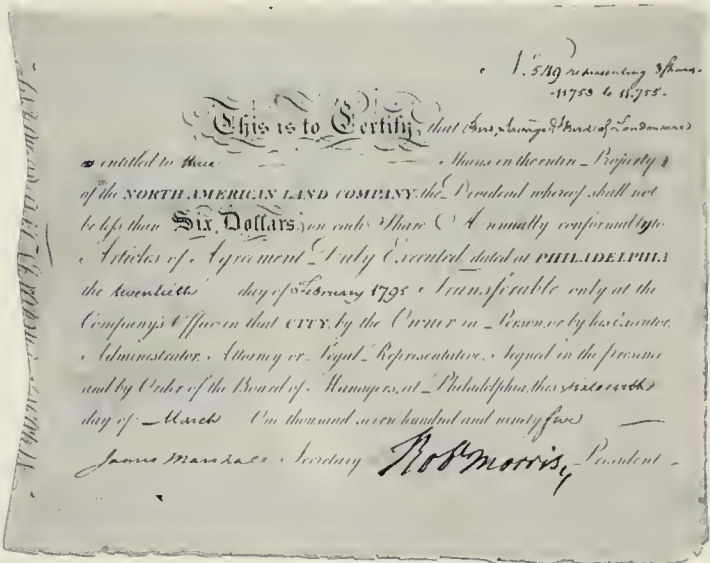 N.o 519 representing 3 Shares
11753 to 11.755.
This is to Certify, that Bird, Savage & Bird of London
entitled to three Shares in the entire Property
of the NORTH AMERICAN LAND COMPANY, the Dividend whereof shall not
be less than Six Dollars on each Share Annually conformably to
Articles of Agreement Duly Executed dated at PHILADELPHIA
the twentieth day of February 1795 Transferable only at the
Company's Office in that CITY, by the Owner in Person, or by his Executor,
Administrator, Attorney or Legal Representative. Signed in the presence
and by Order of the Board of Managers, at Philadelphia, this
day of March One thousand seven hundred and ninety five
James Marshall Secretary Rob.t Morris, President